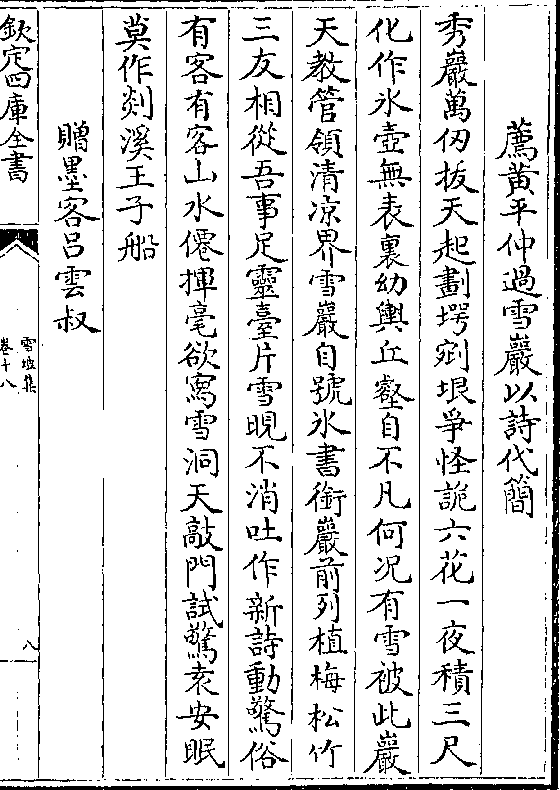 薦黃平仲過雪巖以詩代簡
秀巖萬仭拔天起劃堮剜垠爭怪詭六花一夜積三尺
化作氷壺無表裏幼輿丘壑自不凡何况有雪被此巖
天教管領清凉界雪巖自號氷書銜巖前列植梅松竹
三友相從吾事足靈臺片雪晛不消吐作新詩動驚俗
有客有客山水僊揮毫欲寫雪洞天敲門試驚袁安眠
莫作剡溪王子船
贈墨客呂雲叔
欽定四庫全書
雪坡集
卷十八
八